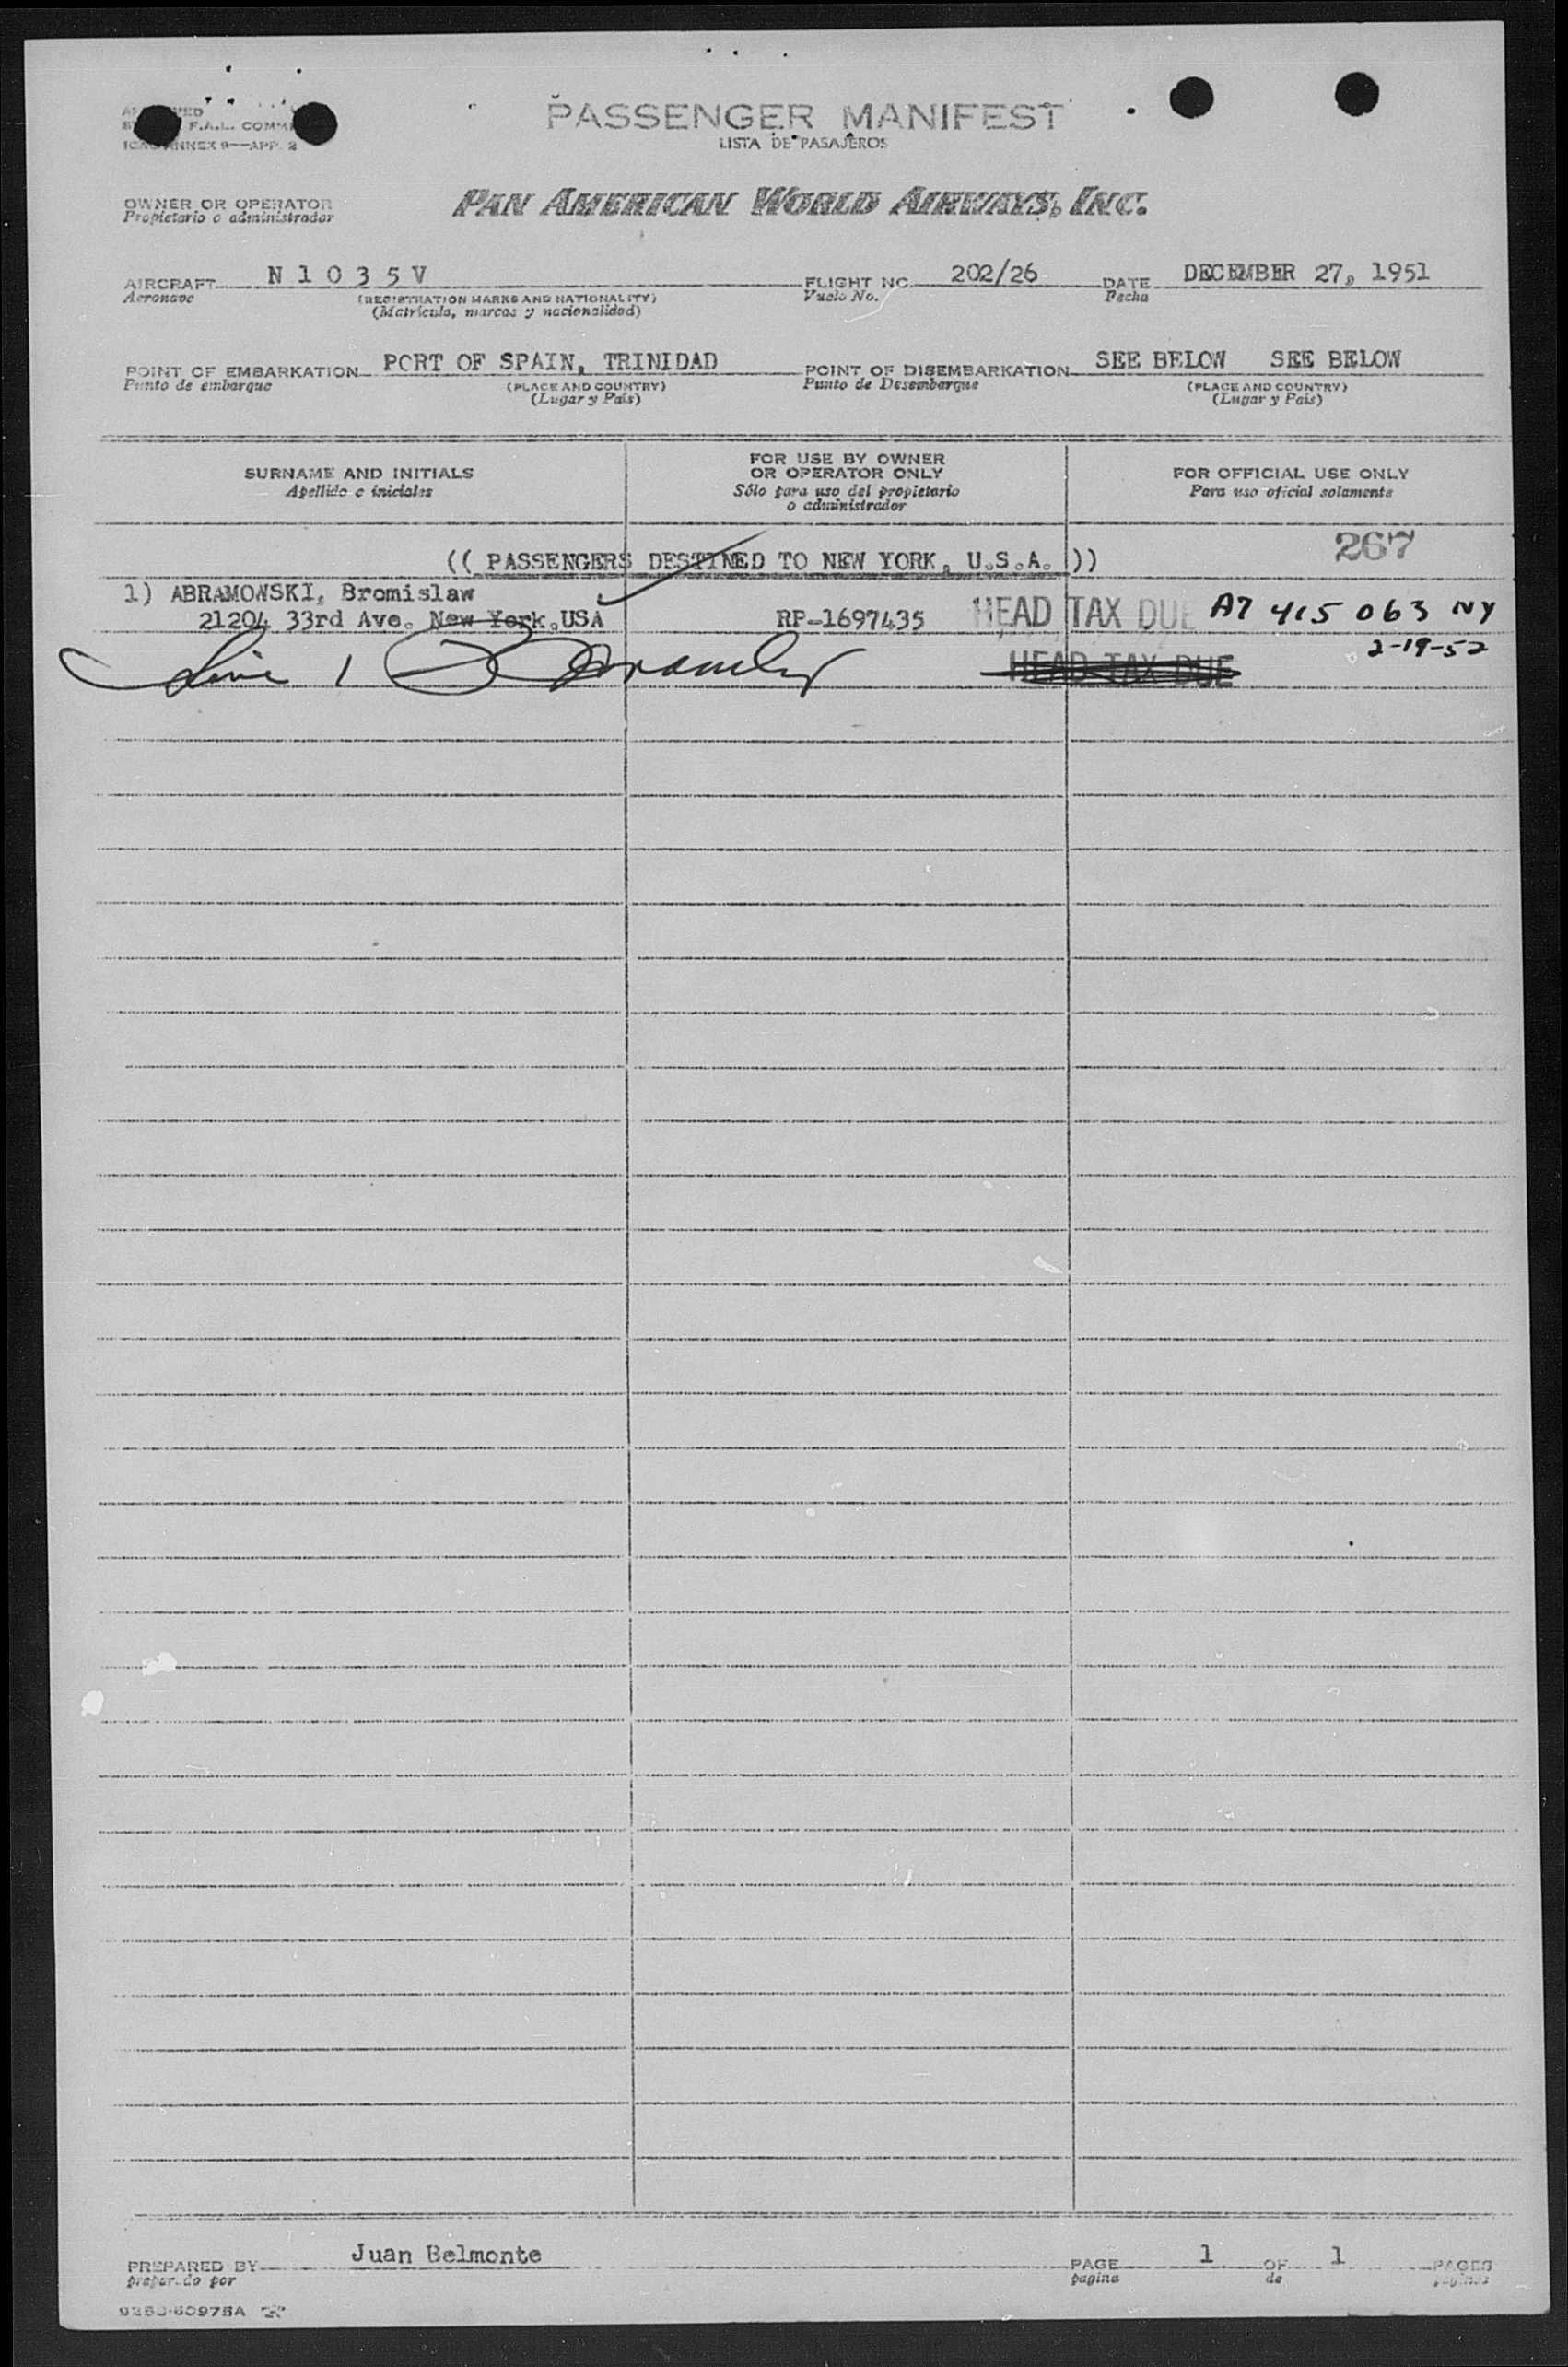 F.A.L. COMM
ICAO ANNEX 9—APP. 2
PASSENGER MANIFEST
LISTA DE PASAJEROS
OWNER OR OPERATOR
Propietario o administrador
PAN AMERICAN WORLD AIRWAYS, INC.
AIRCRAFT N 1 0 3 5 V FLIGHT NO. 202/26 DATE DECEMBER 27, 1951
Aeronave (REGISTRATION MARKS AND NATIONALITY) Vuelo No. Fecha
(Matrícula, marcas y nacionalidad)
POINT OF EMBARKATION PORT OF SPAIN, TRINIDAD POINT OF DISEMBARKATION SEE BELOW SEE BELOW
Punto de embarque (PLACE AND COUNTRY) Punto de Desembarque (PLACE AND COUNTRY)
(Lugar y País) (Lugar y País)
SURNAME AND INITIALS
Apellido e iniciales
FOR USE BY OWNER
OR OPERATOR ONLY
Sólo para uso del propietario
o administrador
FOR OFFICIAL USE ONLY
Para uso oficial solamente
267
(( PASSENGERS DESTINED TO NEW YORK, U.S.A. ))
1) ABRAMOWSKI, Bromislaw
21204 33rd Ave. New York.USA RP-1697435 HEAD TAX DUE A7 415 063 NY
2-19-52
Line 1 HEAD TAX DUE
PREPARED BY Juan Belmonte PAGE 1 OF 1 PAGES
preparado por pagina de paginas